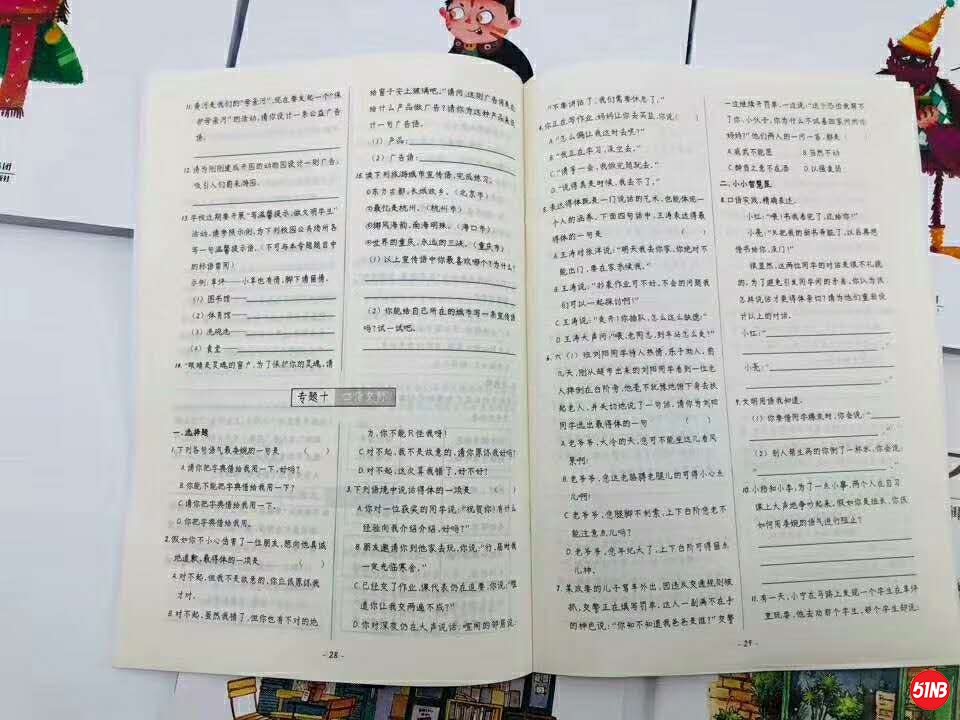 11.黄河是我们的“母亲河”,现在要发起一个“保
护母亲河”的活动,请你设计一条公益广告
语。
12.请为刚刚建成开园的动物园设计一则广告,
吸引人们前来游园。
13.学校近期要开展“写温馨提示,做文明学生”
活动,请参照示例,为下列校园公共场所各
写一句温馨提示语。(不可与本专题题目中
的标语雷同)
示例:草坪——小草也有情,脚下请留情。
(1)图书馆——
(2)体育馆——
(3)洗碗池——
(4)食堂——
14.“眼睛是灵魂的窗户,为了保护你的灵魂,请
给窗子安上玻璃吧。”请问,这则广告词是在
给什么产品做广告?请你为这种产品再设
计一句广告语。
(1)产品:
(2)广告语:
15.读下列旅游城市宣传语,完成练习。
①东方古都,长城故乡。(北京市)
②最忆是杭州。(杭州市)
③椰风海韵,南海明珠。(海口市)
④世界的重庆,永远的三峡。(重庆市)
(1)以上宣传语中你最喜欢哪个?为什么?
(2)你能给自己所在的城市写一条宣传语
吗?试一试吧。
专题十 口语交际
一、选择题
1.下列各句语气最委婉的一句是 ( )
A.请你把字典借给我用一下,好吗?
B.你能不能把字典借给我用一下?
C.请你把字典借给我用一下。
D.你把字典借给我用。
2.假如你不小心伤害了一位朋友,想向他真诚
地道歉,最得体的一项是 ( )
A.对不起,但我不是故意的,你应该原谅我
才对。
B.对不起,虽然我错了,但你也有不对的地
方,你不能只怪我呀!
C.对不起,我不是故意的,请你原谅我好吗?
D.对不起,这次算我错了,好不好?
3.下列语境中说话得体的一项是 ( )
A.你对一位获奖的同学说:“祝贺你!有什么
经验向我介绍介绍,好吗?”
B.朋友邀请你到他家去玩,你说:“行,届时我
一定光临寒舍。”
C.已经交了作业,课代表仍在追要,你说:“难
道你让我交两遍不成?”
D.你对深夜仍在大声说话、喧闹的邻居说:
- 28 -
“不要讲话了,我们需要休息了。”
4.你正在写作业,妈妈让你去买盐,你说( )
A.“怎么偏让我这时去呢?”
B.“我正在学习,没空去。”
C.“请等一会,我做完题就去。”
D.“说得真是时候,我去不了。”
5.表达得体既是一门说话的艺术,也能体现一
个人的涵养。下面四句话中,王涛表达得最
得体的一句是 ( )
A.王涛对张洋说:“明天我去你家,你绝对不
能出门,要在家恭候我。”
B.王涛说:“抄袭作业可不好,不会的问题我
们可以一起探讨啊!”
C.王涛说:“走开!你插队,怎么这么缺德!”
D.王涛大声问:“喂,老同志,到车站怎么走?”
6.六(1)班刘阳同学待人热情,乐于助人,前
几天,刚从超市出来的刘阳同学看到一位老
人摔倒在台阶旁,他毫不犹豫地俯下身去扶
起老人,并关切地说了一句话,请你为刘阳
同学选出最得体的一句 ( )
A.老爷爷,大冷的天,您可不能坐这儿看风
景啊!
B.老爷爷,您这走路得老腿儿的可得小心点
儿啊!
C.老爷爷,您腿脚不利索,上下台阶您老不
能注意点儿吗?
D.老爷爷,您年纪大了,上下台阶可得留点
儿神。
7.某政要的儿子驾车外出,因违反交通规则被
抓,交警正在填写罚单,这人一副满不在乎
的神色说:“你知不知道我爸爸是谁?”交警
一边继续开罚单,一边说:“这个恐怕我帮不
了你,小伙子,你为什么不试着回家问问你
妈妈?”他们两人的一问一答,都是 ( )
A.威武不能屈 B.当然不动
C.醉翁之意不在酒 D.以强凌弱
二、小小智慧星
8.口语实践,精确表达。
小红:“喂!书我看完了,还给你!”
小亮:“又把我的新书弄脏了,以后再想
借书给你,没门!”
很显然,这两位同学的对话是很不礼貌
的,为了避免引发同学间的矛盾,你认为该
怎样说话才更得体亲切?请为他们重新设
计以上的对话。
小红:“
。”
小亮:“
。”
9.文明用语我知道。
(1)你要借同学橡皮时,你会说:“
。”
(2)别人帮生病的你倒了一杯水,你会说:
“ 。”
10.小杨和小李,为了一点小事,两个人在自习
课上大声地争吵起来,假如你是班长,你该
如何用委婉的语气进行阻止?
11.有一天,小宁在马路上发现一个学生在草坪
里玩耍,他去劝那个学生,那个学生却说:
- 29 -
51NB